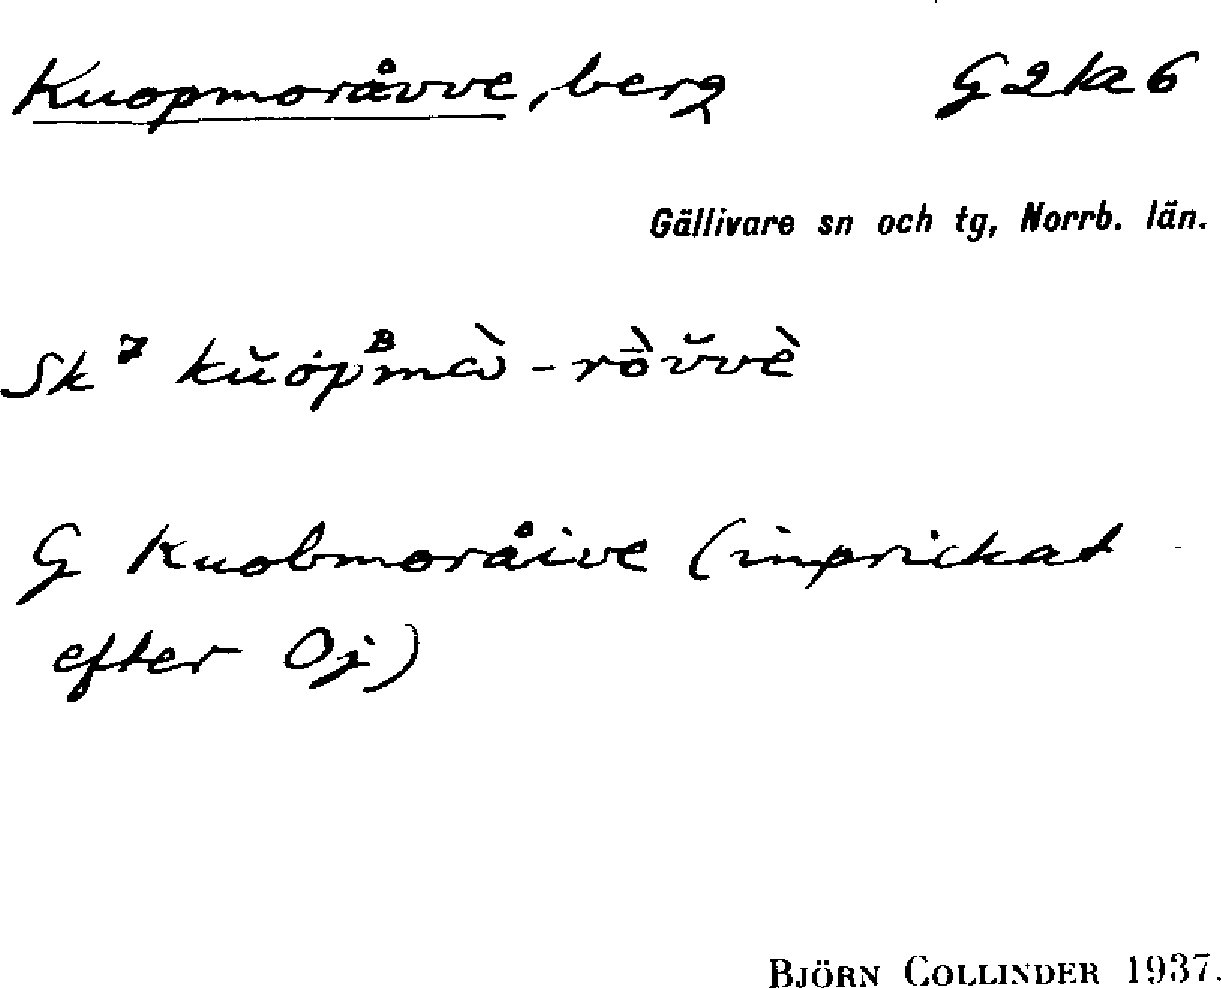 Kuopmoråvve, berg G2ka6
Gällivare sn och tg, Norrb. län.
Sk 7 kŭȯpᴮmὼ-rò̄v̆vè
G Kuobmoråive (inprickat
efter Oj)
BJÖRN COLLINDER 1937.